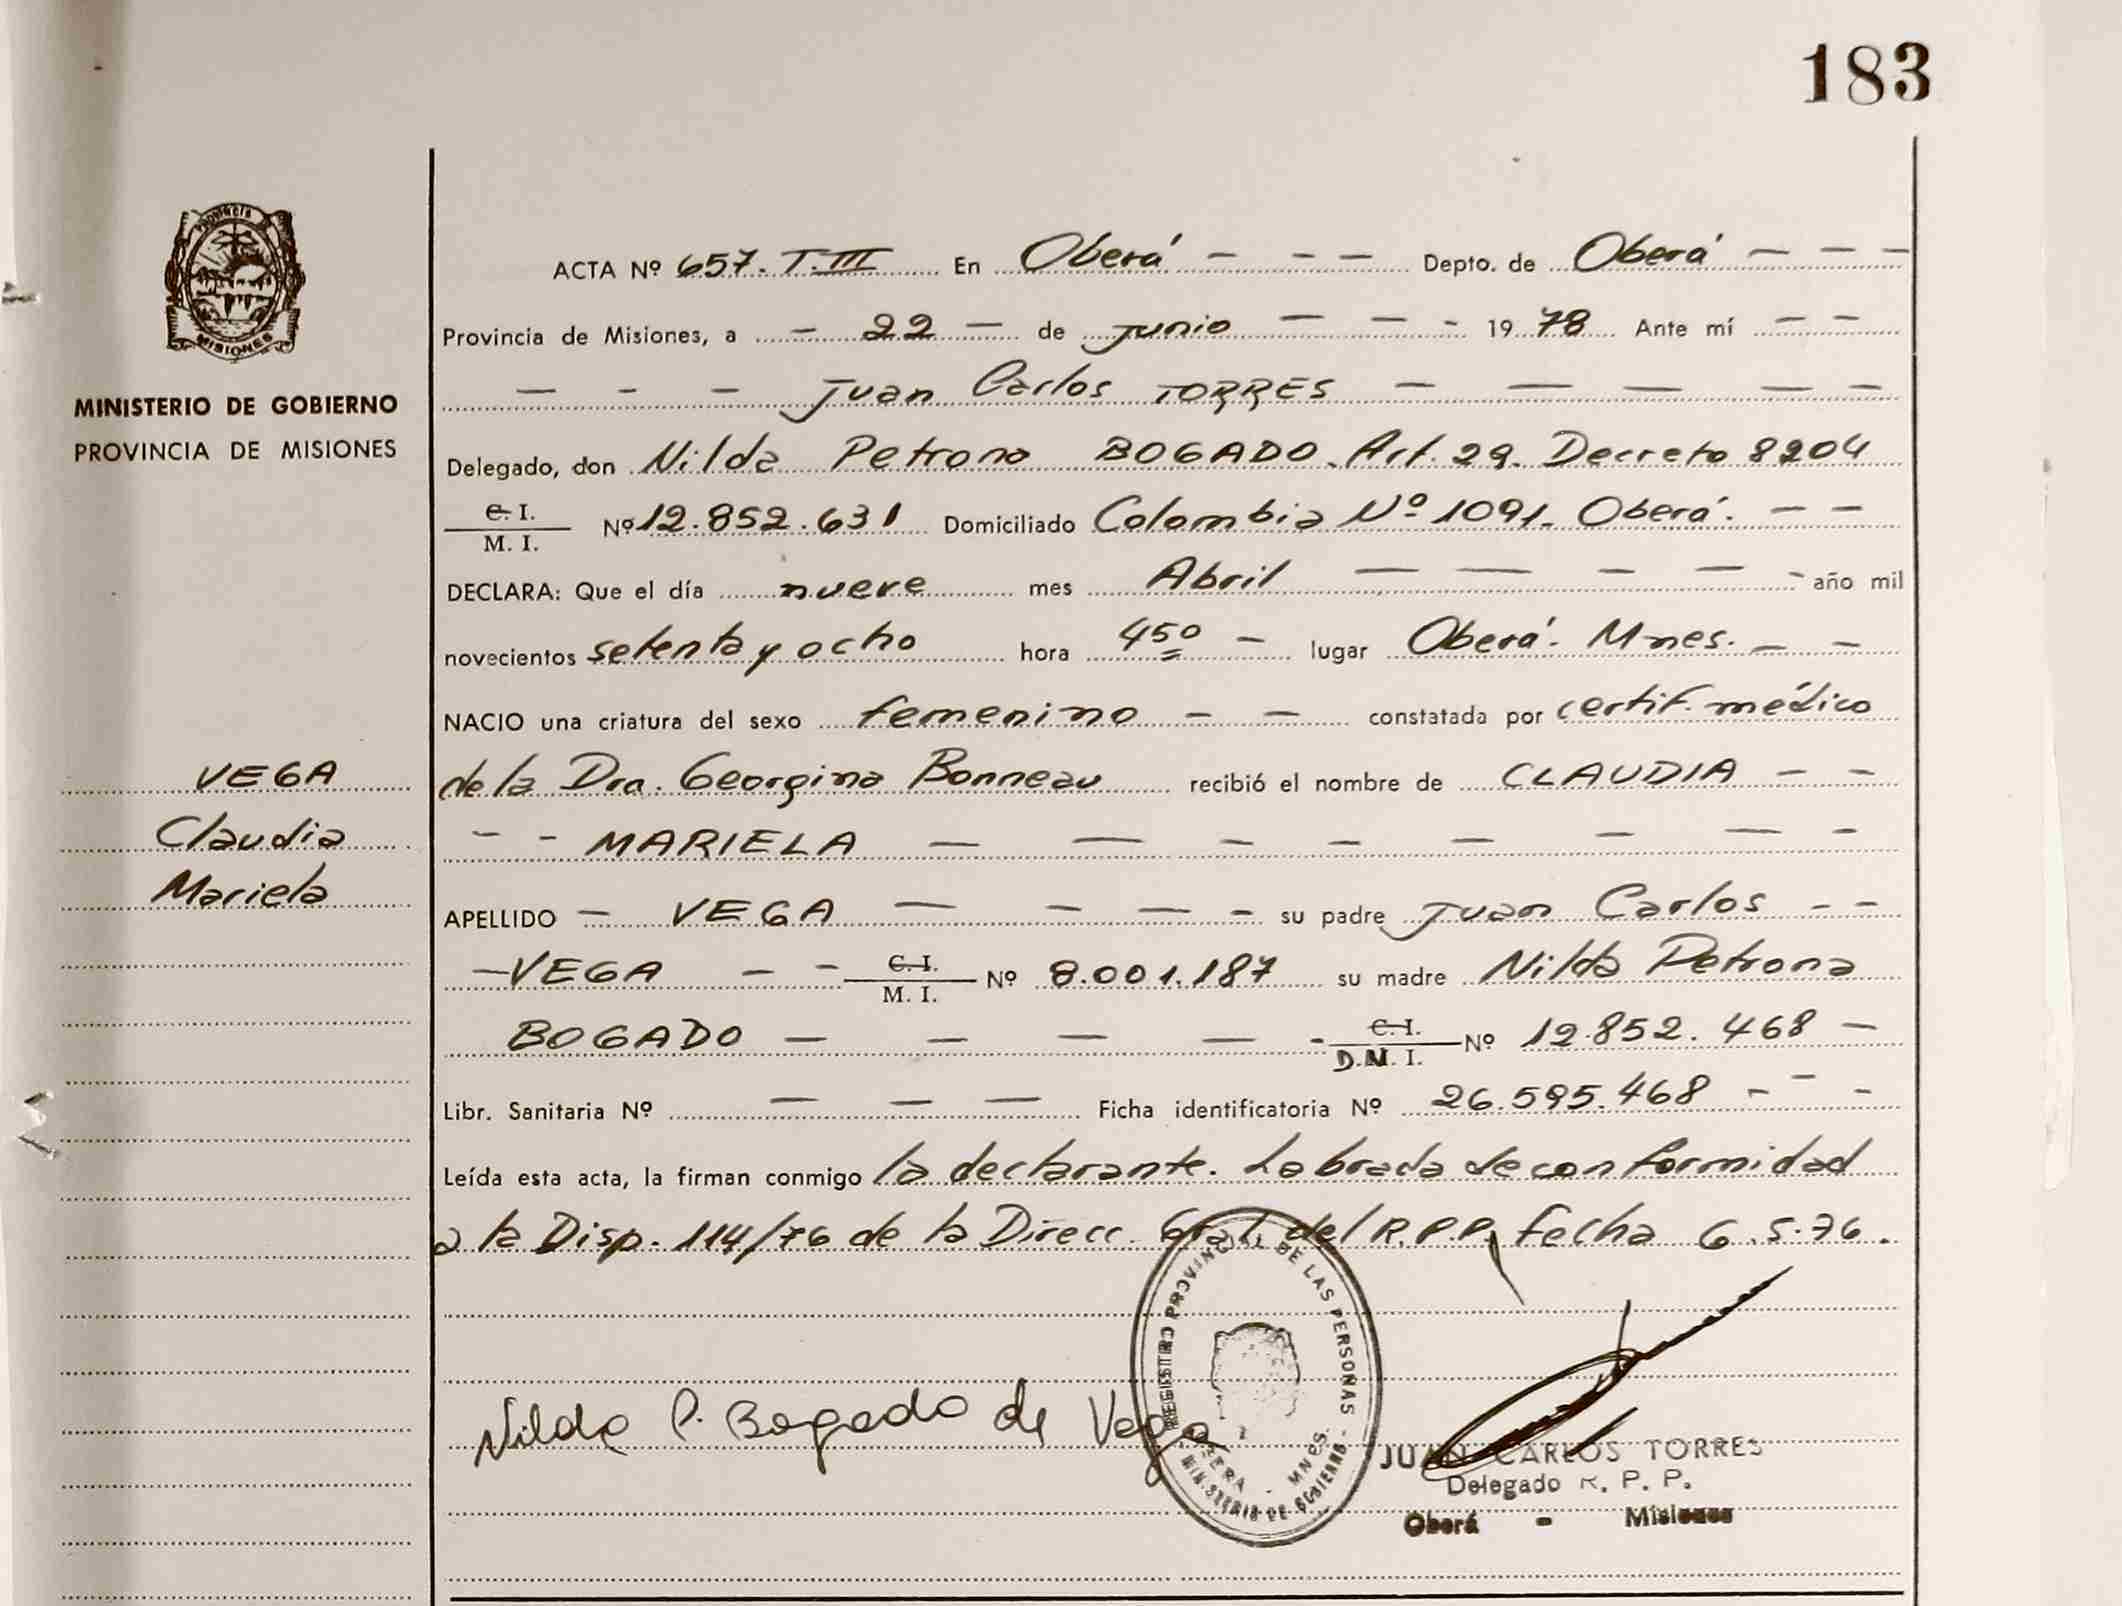 183
Provincia de
MISIONES
MINISTERIO DE GOBIERNO
PROVINCIA DE MISIONES
VEGA
Claudia
Mariela
ACTA Nº 657. T.III En Oberá - - - Depto. de Oberá - - -
Provincia de Misiones, a - 22 - de Junio - - - 1978 Ante mí - -
- - - Juan Carlos TORRES - - - - -
Delegado, don Nilda Petrona BOGADO. Art. 29. Decreto 8204
C. I. / M. I. Nº 12.852.631 Domiciliado Colombia Nº 1091. Oberá. - -
DECLARA: Que el día nueve mes Abril - - - - - año mil
novecientos setenta y ocho hora 450 - lugar Oberá. Mnes. - -
NACIO una criatura del sexo femenino - - constatada por certif. médico
de la Dra. Georgina Bonneau recibió el nombre de CLAUDIA - -
- - MARIELA - - - - - - - -
APELLIDO - VEGA - - - - su padre Juan Carlos - -
- VEGA - - C. I. / M. I. Nº 8.001.187 su madre Nilda Petrona
BOGADO - - - - - C. I. / D.N. I. Nº 12.852.468 -
Libr. Sanitaria Nº - - - Ficha identificatoria Nº 26.595.468 - - -
Leída esta acta, la firman conmigo la declarante. Labrada de conformidad
a la Disp. 114/76 de la Direcc. Gral. del R.P.P. fecha 6.5.76.
Nilda P. Bogado de Vega
REGISTRO PROVINCIAL DE LAS PERSONAS
MNES.
MINISTERIO DE GOBIERNO
JUAN CARLOS TORRES
Delegado R. P. P.
Oberá - Misiones